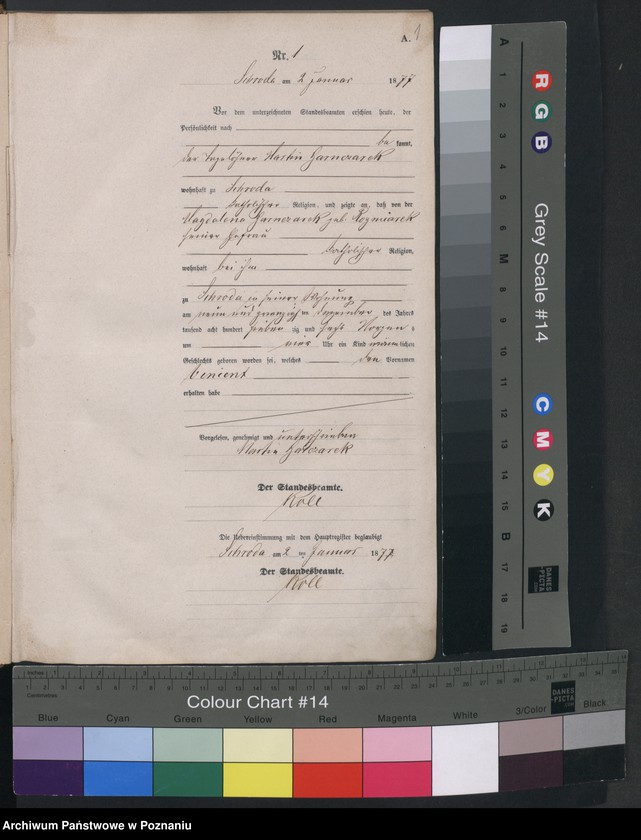 A. 1
Nr. 1
Schroda am 2 Januar 1877
Vor dem unterzeichneten Standesbeamten erschien heute, der
Persönlichkeit nach
be kannt,
der Martin Garnczarek
wohnhaft zu Schroda
katholischer Religion, und zeigte an, daß von der
Magdalena Garnczarek geb. Kozmiarek
seiner Ehefrau
katholischer Religion,
wohnhaft bei ihm
zu Schroda in seiner Wohnung
am neun und zwanzigsten Dezember des Jahres
tausend acht hundert sieben zig und sechs Morgens
um vier Uhr ein Kind männlichen
Geschlechts geboren worden sei, welches den Vornamen
erhalten habe
Vorgelesen, genehmigt und unterschrieben
Martin Garczarek
Der Standesbeamte.
Roll
Die Uebereinstimmung mit dem Hauptregister beglaubigt
Schroda am 2 ten Januar 1877
Der Standesbeamte.
Roll
Grey Scale #14
A 1 2 3 4 5 6 M 8 9 10 11 12 13 14 15 B 17 18 19
R G B
C M Y K
DANES
-PICTA
.COM
Inches
Centimetres
Colour Chart #14
DANES
-PICTA
.COM
Blue Cyan Green Yellow Red Magenta White 3/Color Black
Archiwum Państwowe w Poznaniu